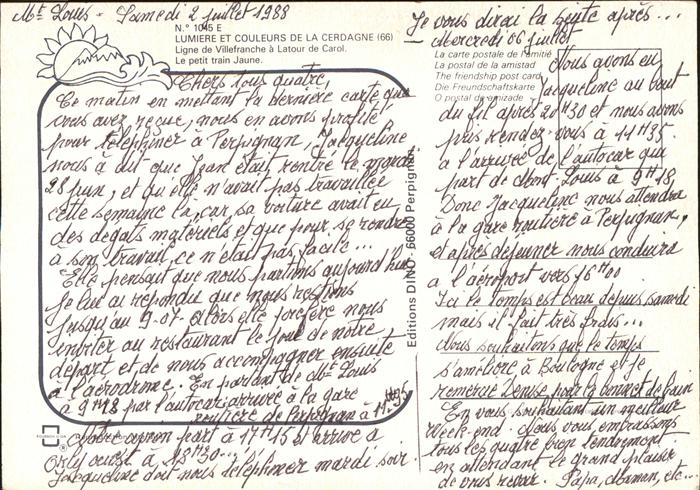 Mt Louis - Samedi 2 juillet 1988
N.° 1045 E
LUMIERE ET COULEURS DE LA CERDAGNE (66)
Ligne de Villefranche à Latour de Carol.
Le petit train Jaune.
Chers tous quatre,
Ce matin en mettant la dernière carte que
vous avez reçue, nous en avons profité
pour téléphoner à Perpignan, Jacqueline
nous à dit que Jean était rentré le mardi
28 juin, et qu'elle n'avait pas travaillée
cette semaine là, car sa voiture avait eu
des dégats matériels et que pour se rendre
à son travail, ce n'était pas facile...
Elle pensait que nous partions aujourd'hui
je lui ai répondu que nous restions
jusqu'au 9-07. Alors elle préfère nous
inviter au restaurant le jour de notre
départ, et de nous accompagner ensuite
à l'aérodrome. En partant de Mt Louis
à 9H18 par l'autocar, arrivée à la gare
routière de Perpignan à 11H35
Notre avion part à 17H15 et arrive à
Orly ouest à 18H30...
Jacqueline doit nous téléphoner mardi soir.
Editions DINO - 66000 Perpignan
Je vous dirai la suite après...
- Mercredi 06 juillet
La carte postale de l'amitié
La postal de la amistad
The friendship post card
Die Freundschaftskarte
O postal de amizade
Nous avons eu
Jacqueline au bout
du fil après 20H30 et nous avons
pris rendez-vous à 11H35
à l'arrivée de l'autocar qui
part de Mont-Louis à 9H18,
Donc Jacqueline nous attendra
à la gare routière à Perpignan,
et après déjeuner nous conduira
à l'aéroport vers 16H00
Ici le temps est beau depuis samedi
mais il fait très frais...
Nous souhaitons que le temps
s'améliore à Boulogne et je
remercie Denise pour le bonnet de bain
En vous souhaitant un meilleur
Week-end. Nous vous embrassons
tous les quatre bien tendrement
en attendant le grand plaisir
de vous revoir. Papa, Maman, etc...